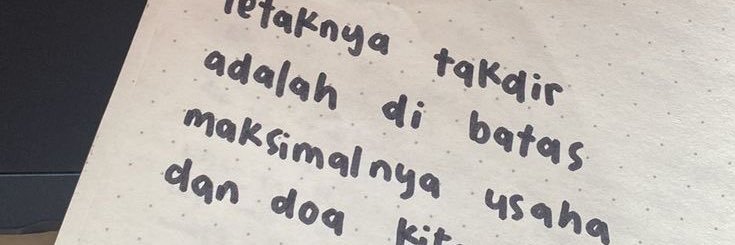 letaknya takdir
adalah di batas
maksimalnya usaha
dan doa